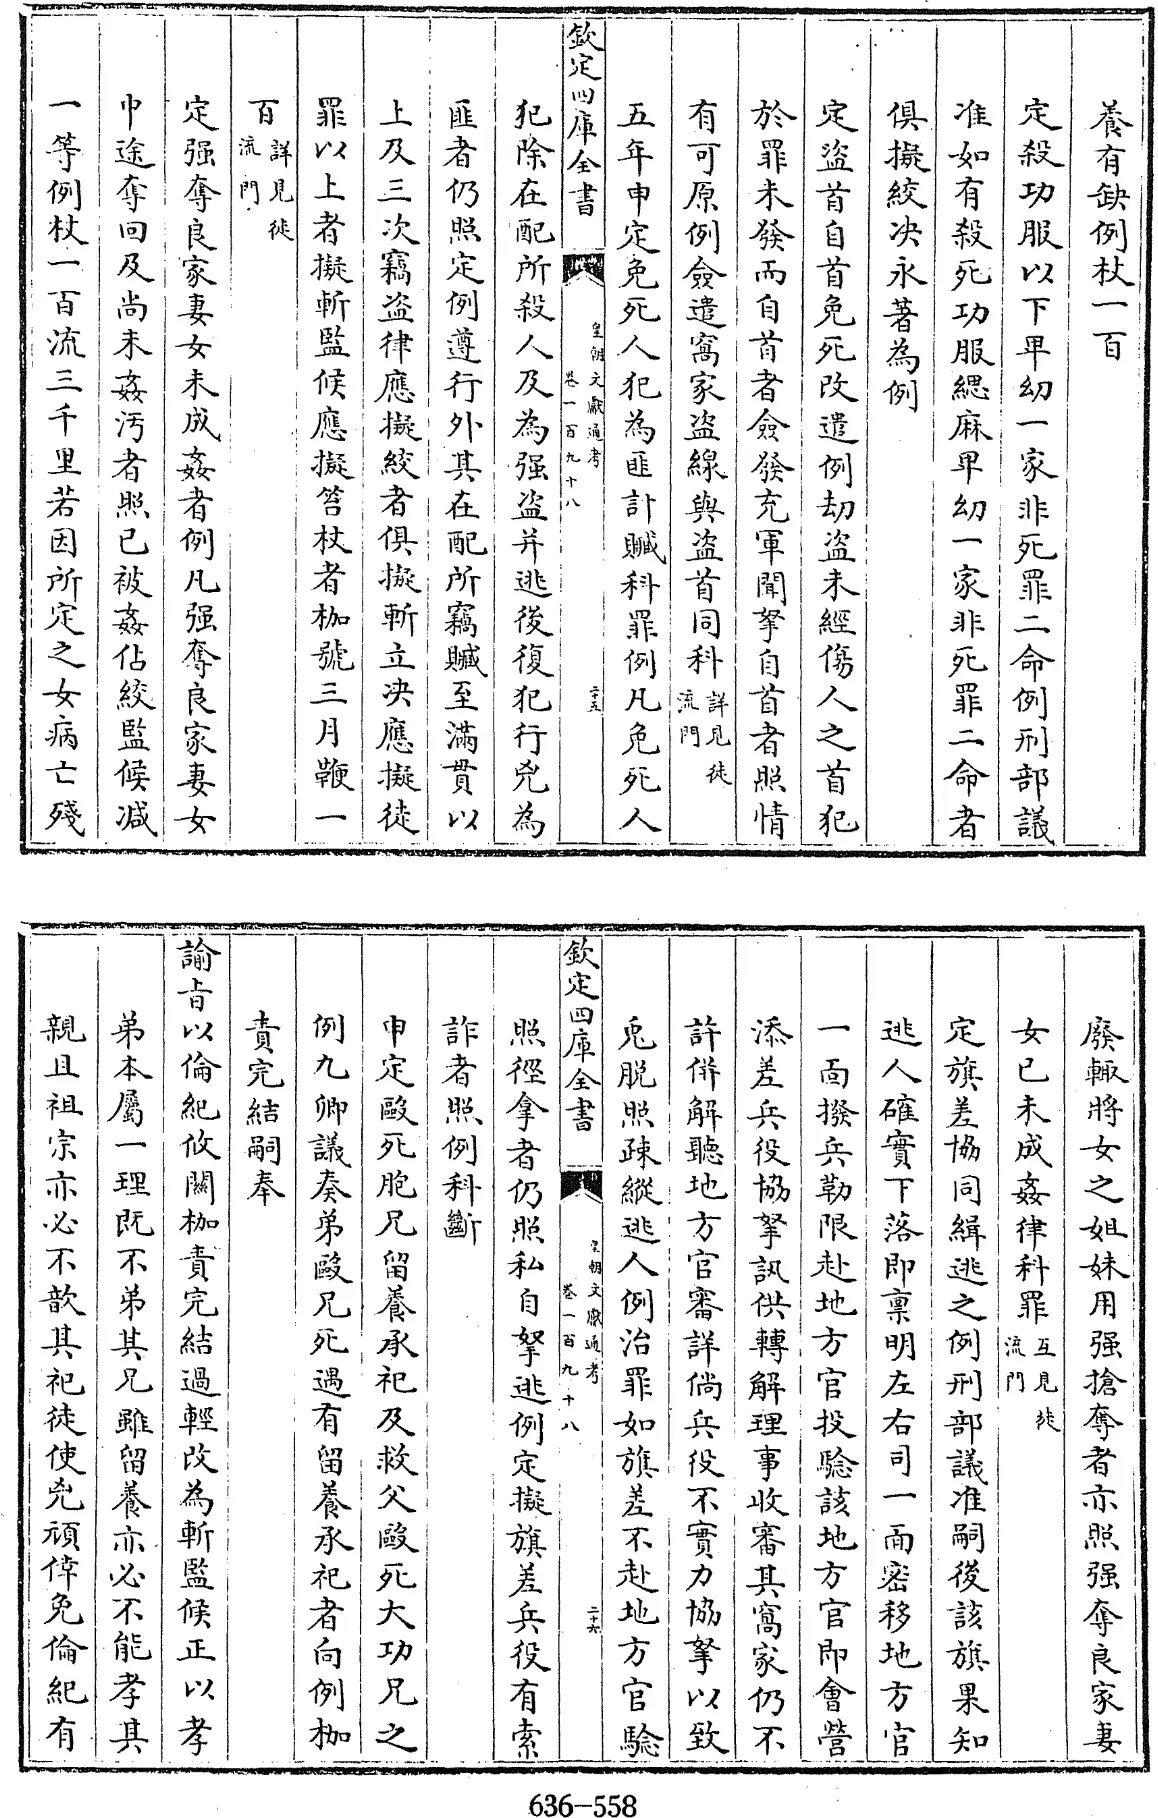 養有缺例杖一百
定殺功服以下卑幼一家非死罪二命例刑部議
准如有殺死功服緦麻卑幼一家非死罪二命者
俱擬絞决永著為例
定盜首自首免死改遣例劫盜未經傷人之首犯
於罪未發而自首者僉發充軍聞拏自首者照情
有可原例僉遣窩家盜線與盜首同科詳見徒流門
五年申定免死人犯為匪計贓科罪例凡免死人
欽定四庫全書
皇朝文獻通考
卷一百九十八
二十五
犯除在配所殺人及為强盜并逃後復犯行兇為
匪者仍照定例遵行外其在配所竊贓至滿貫以
上及三次竊盜律應擬絞者俱擬斬立决應擬徒
罪以上者擬斬監候應擬笞杖者枷號三月鞭一
百詳見徒流門
定强奪良家妻女未成姦者例凡强奪良家妻女
中途奪回及尚未姦汚者照已被姦佔絞監候减
一等例杖一百流三千里若因所定之女病亡殘
廢輙將女之姐妹用强搶奪者亦照强奪良家妻
女已未成姦律科罪互見徒流門
定旗差協同緝逃之例刑部議准嗣後該旗果知
逃人確實下落即禀明左右司一面密移地方官
一面撥兵勒限赴地方官投驗該地方官即會營
添差兵役協拏訊供轉解理事收審其窩家仍不
許併解聽地方官審詳倘兵役不實力協拏以致
兎脱照疎縱逃人例治罪如旗差不赴地方官驗
欽定四庫全書
皇朝文獻通考
卷一百九十八
二十六
照徑拿者仍照私自拏逃例定擬旗差兵役有索
詐者照例科斷
申定毆死胞兄留養承祀及救父毆死大功兄之
例九卿議奏弟毆兄死遇有留養承祀者向例枷
責完結嗣奉
諭旨以倫紀攸關枷責完結過輕改為斬監候正以孝
弟本屬一理既不弟其兄雖留養亦必不能孝其
親且祖宗亦必不歆其祀徒使兇頑倖免倫紀有
636-558